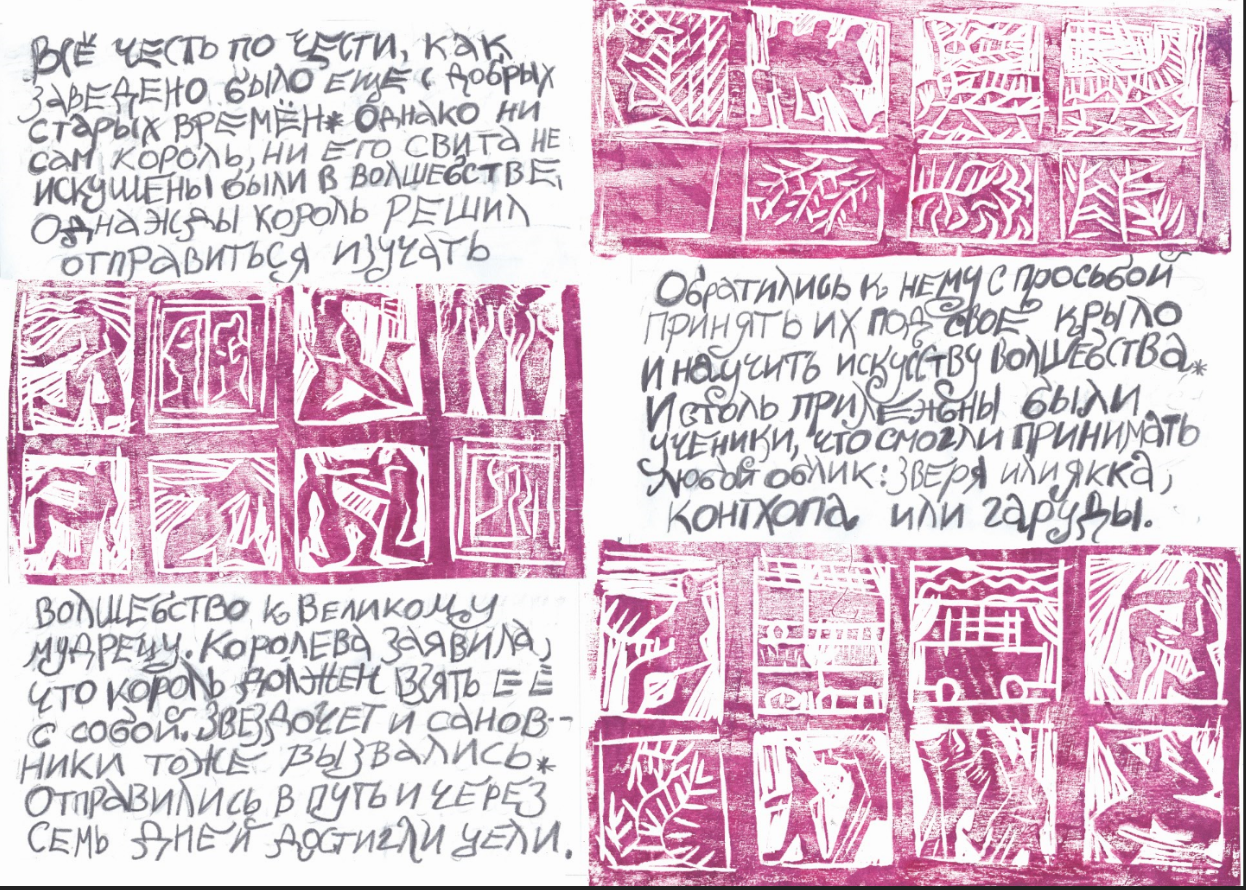 ВСЁ ЧЕСТЬ ПО ЧЕСТИ, КАК
ЗАВЕДЕНО БЫЛО ЕЩЕ С ДОБРЫХ
СТАРЫХ ВРЕМЁН* ОДНАКО НИ
САМ КОРОЛЬ, НИ ЕГО СВИТА НЕ
ИСКУШЕНЫ БЫЛИ В ВОЛШЕБСТВЕ,
ОДНАЖДЫ КОРОЛЬ РЕШИЛ
ОТПРАВИТЬСЯ ИЗУЧАТЬ
ВОЛШЕБСТВО К ВЕЛИКОМУ
МУДРЕЦУ. КОРОЛЕВА ЗАЯВИЛА,
ЧТО КОРОЛЬ ДОЛЖЕН ВЗЯТЬ ЕЁ
С СОБОЙ. ЗВЕЗДОЧЕТ И САНОВ-
НИКИ ТОЖЕ ВЫЗВАЛИСЬ*
ОТПРАВИЛИСЬ В ПУТЬ И ЧЕРЕЗ
СЕМЬ ДНЕЙ ДОСТИГЛИ ЦЕЛИ.
ОБРАТИЛИСЬ К НЕМУ С ПРОСЬБОЙ
ПРИНЯТЬ ИХ ПОД СВОЕ КРЫЛО
И НАУЧИТЬ ИСКУССТВУ ВОЛШЕБСТВА*
И СТОЛЬ ПРИЛЕЖНЫ БЫЛИ
УЧЕНИКИ, ЧТО СМОГЛИ ПРИНИМАТЬ
ЛЮБОЙ ОБЛИК: ЗВЕРЯ ИЛИ ЯККА,
КОНТХОПА ИЛИ ГАРУДЫ.